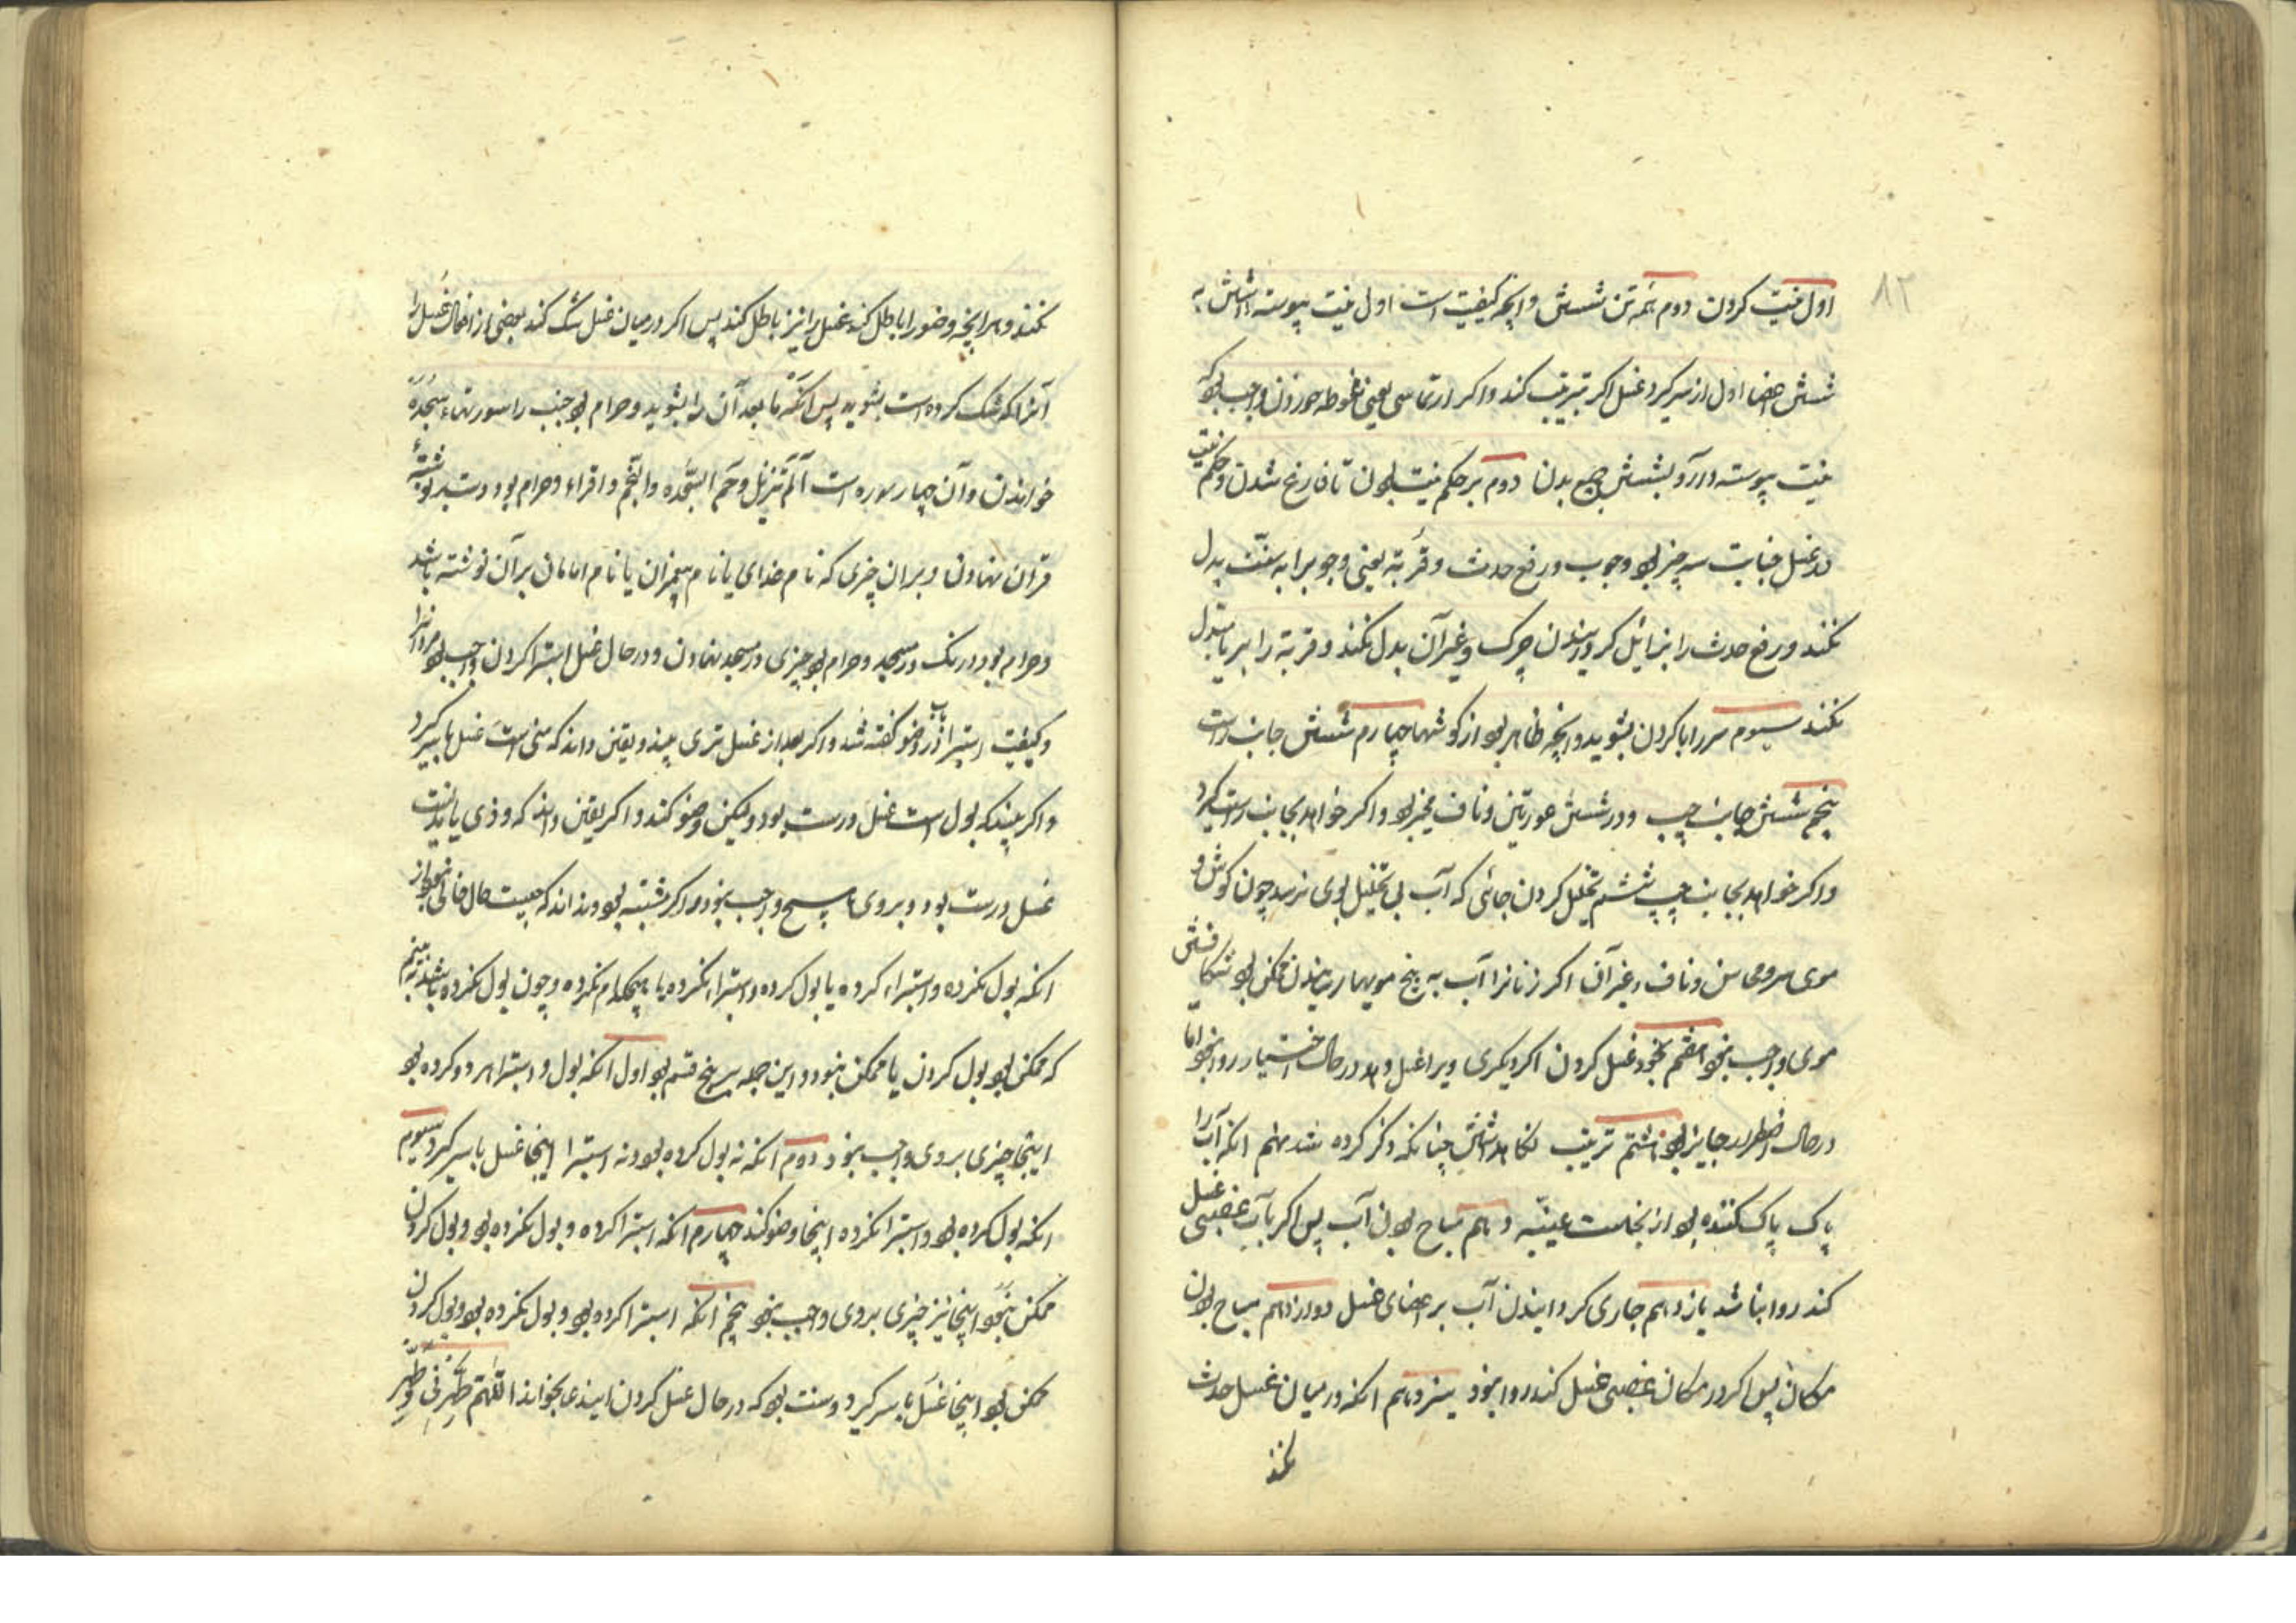 ۸۲
اول نیت کردن دوم همه تن شستن و انچه کیفیت است اول نیت پیوسته داشتن به
شستن اعضا اول از سر گیرد غسل اکر ترتیب کند واکر ارتماسی یعنی غوطه خوردن واجب بود که
نیت پیوسته دارد و بشستن جمیع بدن دوم بر حکم نیت بودن تا فارغ شدن و حکم نیت
در غسل جنابت سه چیز بود وجوب و رفع حدث و قربة یعنی وجوب را به سنّت بدل
نکند و رفع حدث را بزایل کردانیدن چرک و غیر آن بدل نکند و قربة را بریا بدل
نکند سیوم سر را با کردن بشوید و انچه ظاهر بود از کوشها چهارم شستن جانب راست
پنجم شستن جانب چپ و در شستن عورتین و ناف مخیر بود واکر خواهد بجانب راست کیرد
واکر خواهد بجانب چپ ششم تخلیل کردن جائی که آب بی تخلیل بوی نرسد چون کوش و
موی سر و محاسن و ناف و غیر آن اکر زنانرا آب به بیخ مویها رسانیدن ممکن بود شکافتن
موی واجب نبود هفتم بخود غسل کردن اکر دیکری ویرا غسل دهد در حال اختیار روا نبود اما
در حال اضطرار جایز بود هشتم ترتیب نکاه داشتن چنانکه ذکر کرده شد نهم انکه آب را
پاک پاک کننده بود از نجاست عینیّه دهم مباح بودن آب پس اکر بآب غصبی غسل
کند روا نباشد یازدهم جاری کردانیدن آب بر اعضای غسل دوازدهم مباح بودن
مکان پس اکر در مکان غصبی غسل کند روا نبود سیزدهم انکه در میان غسل حدث
نکند
نکند و هر انچه وضو را باطل کند غسل را نیز باطل کند پس اکر در میان غسل شک کند بعضی از افعال غسل را
آنرا که شک کرده است بشوید پس انکه ما بعد آن را بشوید و حرام بود جنب را سورتهاء سجده
خواندن و آن چهار سوره است آلم تنزیل و حم السّجده و النّجم و اقراء و حرام بود دست بر نوشتهٔ
قرآن نهادن و بران چیزی که نام خدای یا نام پیغمبران یا نام امامان بر آن نوشته باشد
و حرام بود درنک در مسجد و حرام بود چیزی در مسجد نهادن و در حال غسل استبرا کردن واجب بود مردانرا
و کیفیت استبرا در باب وضو کفته شد واکر بعد از غسل تری بیند و یقین داند که منی است غسل با سر کیرد
واکر بیند که بول است غسل درست بود ولیکن وضو کند واکر یقین داند که وذی یا مذیست
غسل درست بود و بروی هیچ واجب نبود و اکر مشتبه بود و نداند که چیست حال خالی نبود از
انکه بول نکرده و استبراء کرده یا بول کرده و استبراء نکرده یا هیچکدام نکرده و چون بول نکرده باشد
که ممکن بود بول کردن یا ممکن نبود و این جمله بر پنج قسم بود اول انکه بول و استبرا هر دو کرده بود
اینجا چیزی بروی واجب نبود دوم انکه نه بول کرده بود و نه استبرا اینجا غسل با سر کیرد سیوم
انکه بول کرده بود و استبرا نکرده اینجا وضو کند چهارم انکه استبرا کرده و بول نکرده بود و بول کردن
ممکن نبود اینجا نیز چیزی بروی واجب نبود پنجم انکه استبرا کرده بود و بول نکرده بود و بول کردن
ممکن بود اینجا غسل با سر کیرد و سنت بود که در حال غسل کردن بخواند اللّهمّ طهّرنی و طهّر